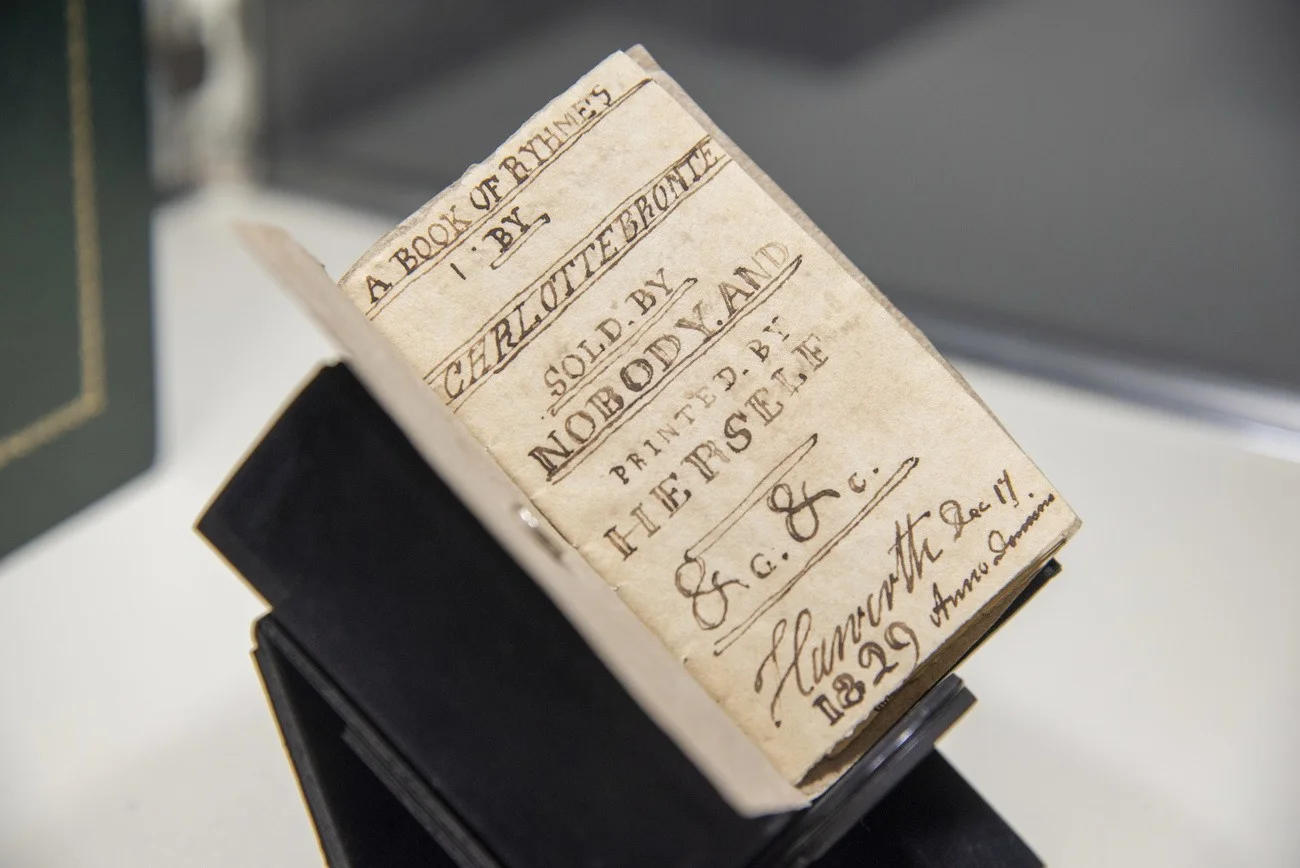 A BOOK OF RYHME'S
BY
CHRLOTTE BRONTE
SOLD. BY
NOBODY. AND
PRINTED. BY
HERSELF
&c. &c.
Haworth Dec 17
1829 Anno Domini